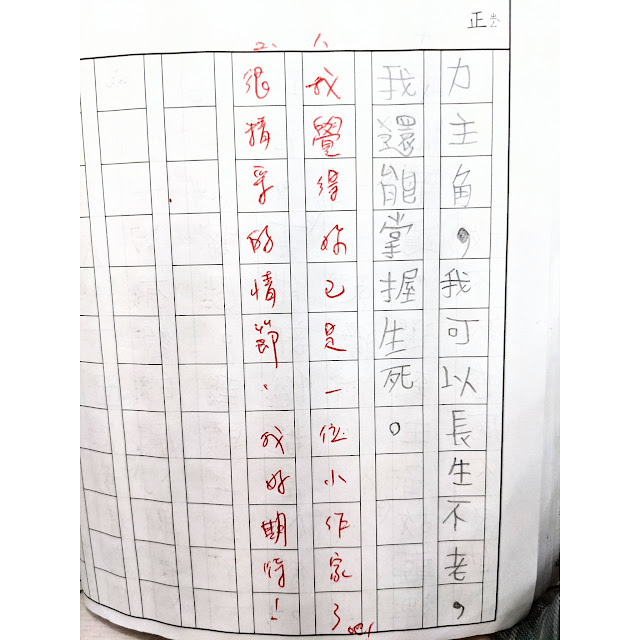 正
力主角，我可以長生不老，
我還能掌握生死。
1、我覺得妳已是一位小作家了
2、很精采的情節，我好期待！